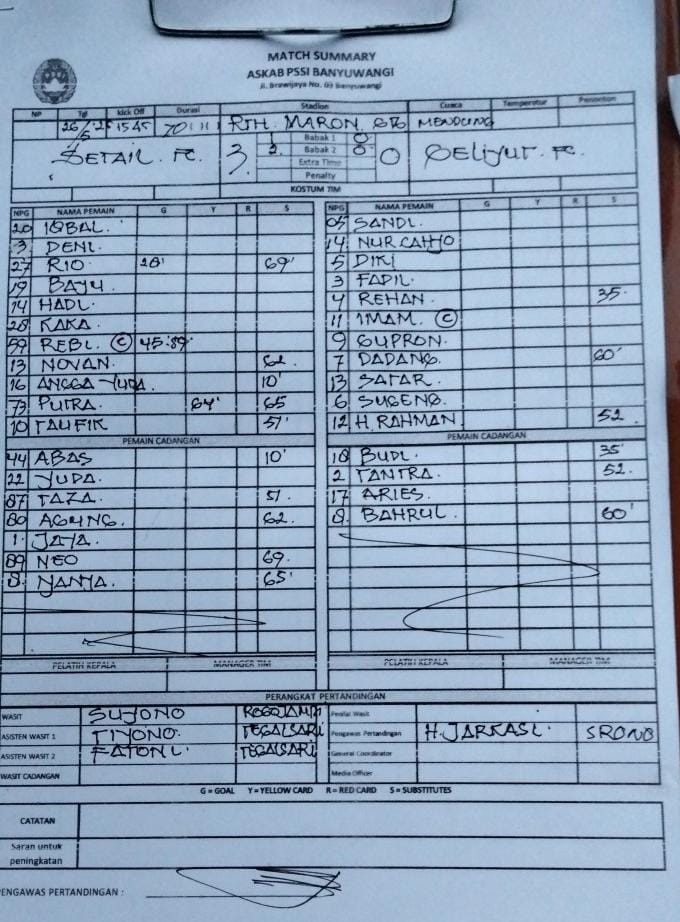 MATCH SUMMARY
ASKAB PSSI BANYUWANGI
Jl. Brawijaya No. 03 Banyuwangi
NP Tgl Kick Off Durasi Stadion Cuaca Temperatur Penonton
26/5 15 45 RTH. MARON. MENDUNG
SETAIL. FC. 3 0
Babak 1 0
2 Babak 2 0
Extra Time
Penalty
KOSTUM TIM
NPG NAMA PEMAIN G Y R S
20 IQBAL.
3 DENI.
27 RIO 28' 69'
19 BAYU.
14 HADI.
28 KAKA.
59 REBI. C 45.89'
13 NOVAN. 62
16 ANGGA YUDA. 10'
73 PUTRA. 64' 65
10 TAUFIK 51'
PEMAIN CADANGAN
44 ABAS 10'
22 YUDA.
87 TAZA. 51.
80 AGUNG. 62.
1. JAYA.
89 NEO 69.
8. NANDA. 65'
PELATIH KEPALA MANAGER TIM
NPG NAMA PEMAIN G Y R S
05 SANDI.
14 NUR CAHYO
5 DIKI
3 FADIL.
4 REHAN. 35.
11 IMAM. C
9 GUPRON.
7 DADANG. 60'
13 SATAR.
6 SUGENG.
12 H. RAHMAN 52.
PEMAIN CADANGAN
18 BUDI. 35'
2 TANTRA. 52.
17 ARIES.
8. BAHRUL. 60'
PELATIH KEPALA MANAGER TIM
PERANGKAT PERTANDINGAN
WASIT SUJONO ROGOJAMPI Penilai Wasit
ASISTEN WASIT 1 TIYONO. TEGALSARI Pengawas Pertandingan H. JARKASI. SRONO
ASISTEN WASIT 2 FATONI. TEGALSARI General Coordinator
WASIT CADANGAN Media Officer
G = GOAL Y = YELLOW CARD R = RED CARD S = SUBSTITUTES
CATATAN
Saran untuk
peningkatan
PENGAWAS PERTANDINGAN :